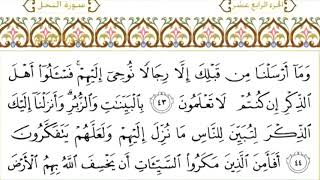 الجزء الرابع عشر
سورة النحل
وَمَا أَرْسَلْنَا مِن قَبْلِكَ إِلَّا رِجَالًا نُّوحِي إِلَيْهِمْ ۚ فَسْـَٔلُوٓا۟ أَهْلَ
ٱلذِّكْرِ إِن كُنتُمْ لَا تَعْلَمُونَ ٤٣ بِٱلْبَيِّنَٰتِ وَٱلزُّبُرِ ۗ وَأَنزَلْنَآ إِلَيْكَ
ٱلذِّكْرَ لِتُبَيِّنَ لِلنَّاسِ مَا نُزِّلَ إِلَيْهِمْ وَلَعَلَّهُمْ يَتَفَكَّرُونَ
٤٤ أَفَأَمِنَ ٱلَّذِينَ مَكَرُوا۟ ٱلسَّيِّـَٔاتِ أَن يَخْسِفَ ٱللَّهُ بِهِمُ ٱلْأَرْضَ